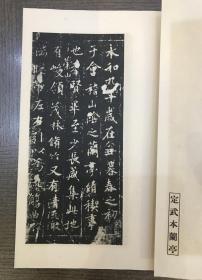 永和九年歲在癸丑暮春之初
于會稽山陰之蘭亭脩稧事
也羣賢畢至少長咸集此地
有崇山峻領茂林脩竹又有清流激
湍暎帶左右引以為流觴曲
定武本蘭亭